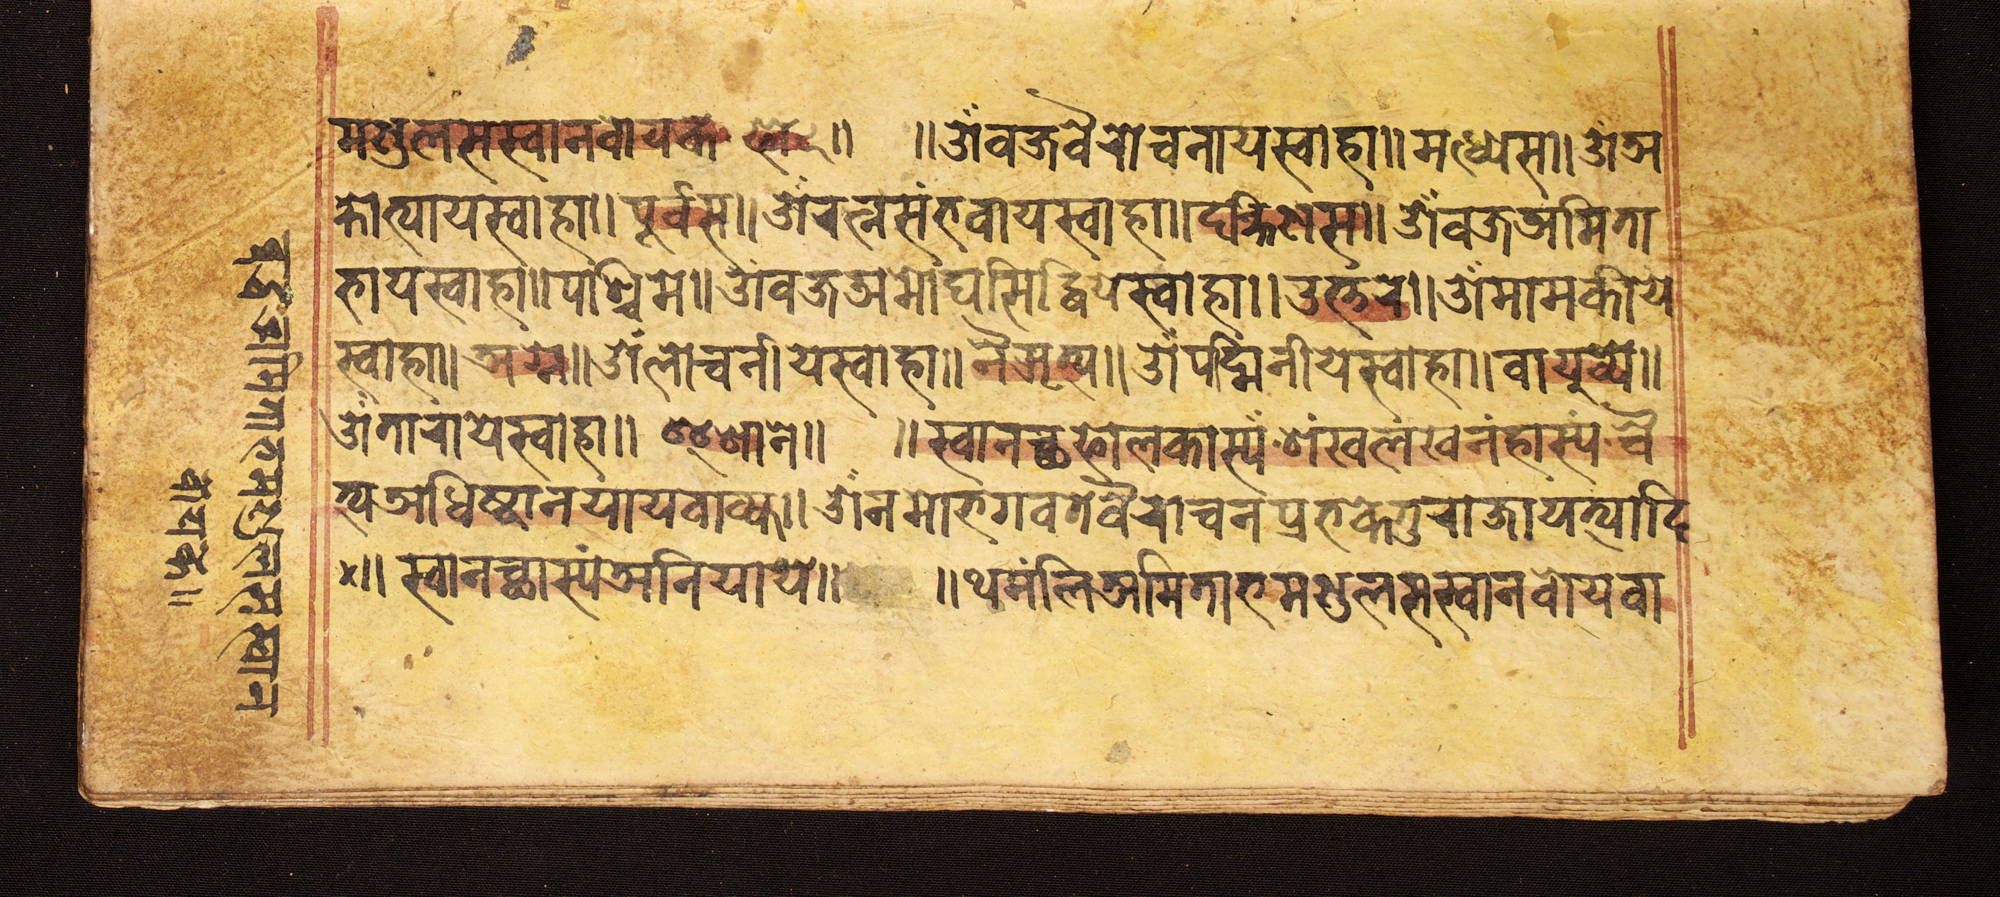 मण्डुलसस्वानवोयके ॥ ॥ ॐवज्रवैरोचनायस्वाहा॥ मत्ध्येस॥ ॐअ
क्षोत्यायस्वाहा॥ पूर्वस॥ ॐरत्नसंभवायस्वाहा॥ दक्षिणस॥ ॐवज्रअमिता
भायस्वाहा॥ पश्चिमे॥ ॐवज्रअमोघसिद्धियेस्वाहा॥ उत्तरे॥ ॐमामकीये
स्वाहा॥ अग्ने॥ ॐलोचनीयेस्वाहा॥ नैऋत्य॥ ॐपद्मिनीयेस्वाहा॥ वायुव्ये॥
ॐतारायेस्वाहा॥ ॥ स्वानच्छफोलकास्यं शंखलंखनंहास्यं चै
त्यअधिष्ठानयायवाक्य॥ ॐनमोभगवतेवैरोचनप्रभकेतुराजायत्यादि
४॥ स्वानच्छास्यंअनियाये॥ ॥ थमंलिअमिताभमण्डुलसस्वानवोयवा
अमिताभमण्डुलसस्वान
वोयके॥